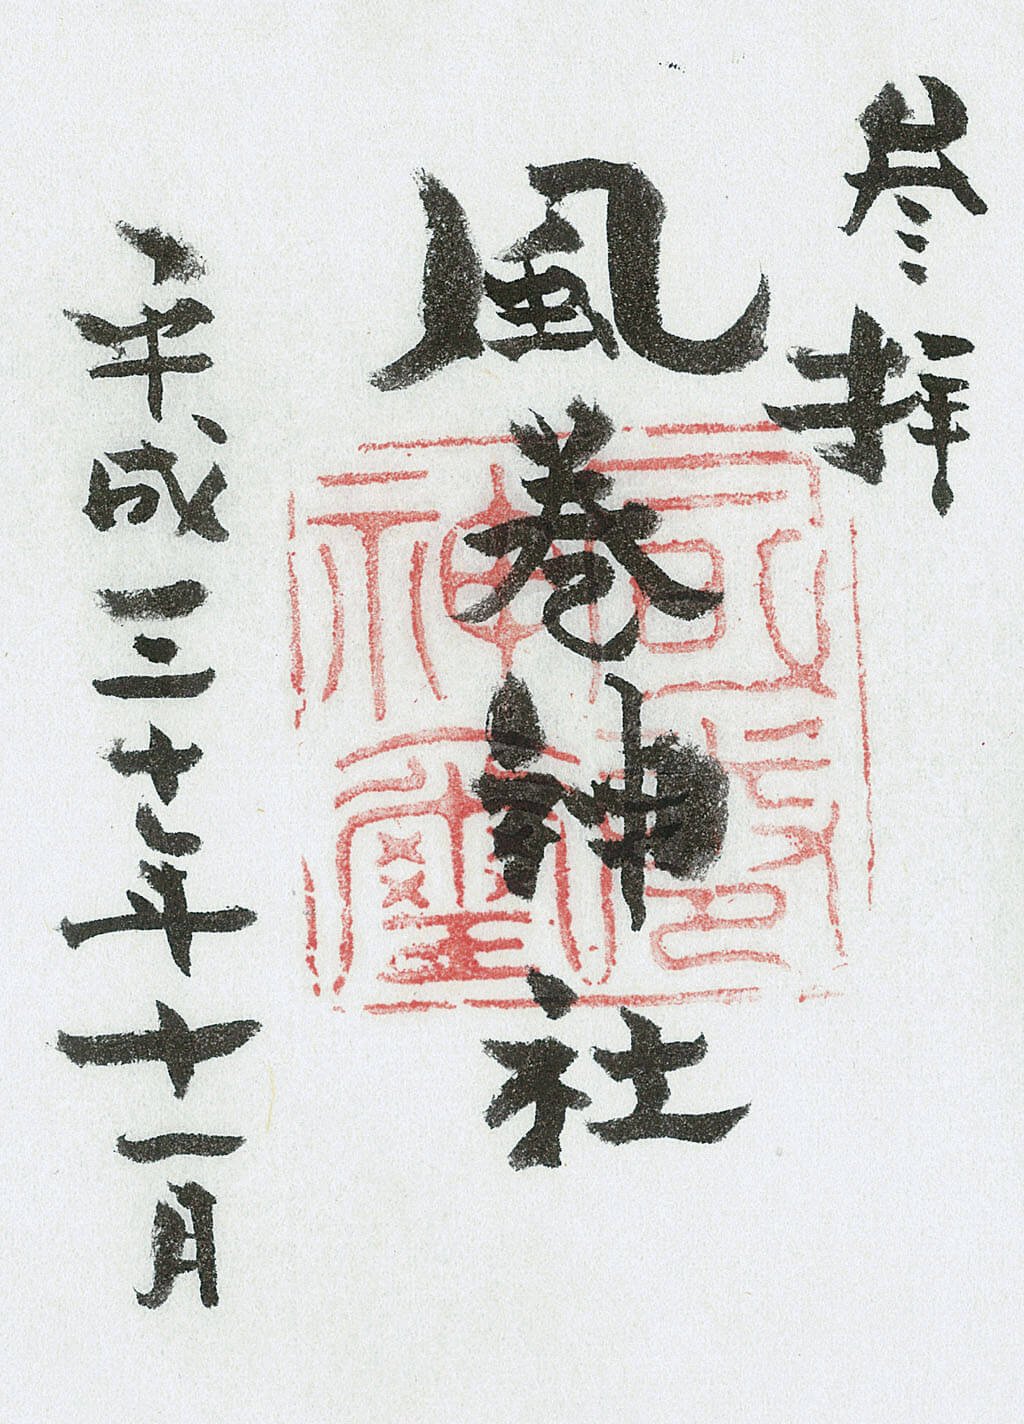 参拝
風巻神社
平成三十年十一月